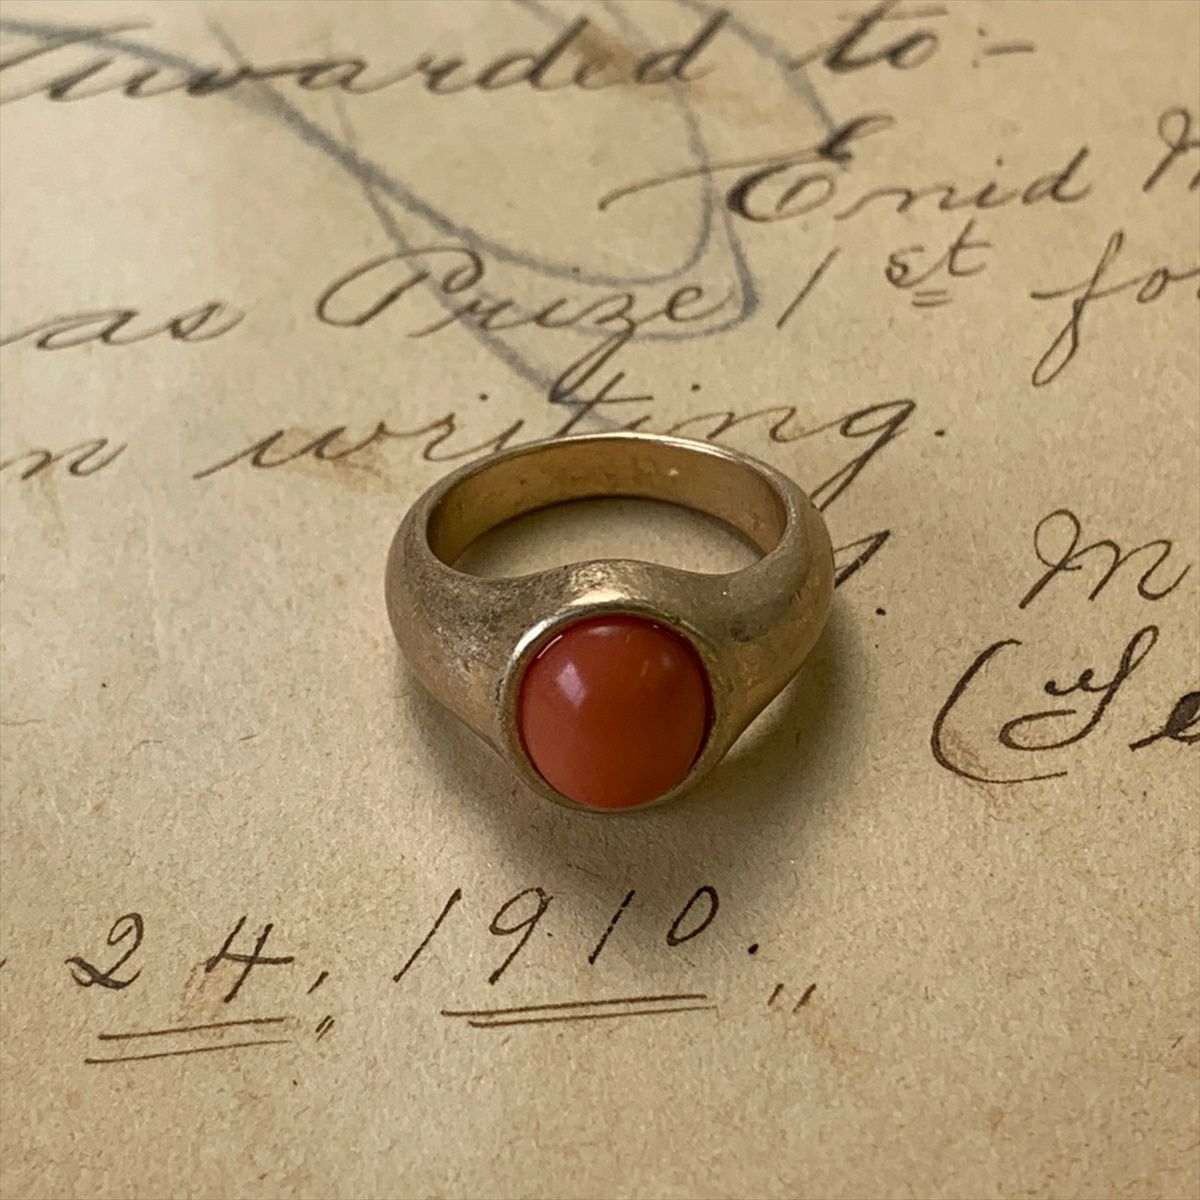 Awarded to:-
Enid
as Prize 1st for
writing.
24, 1910.